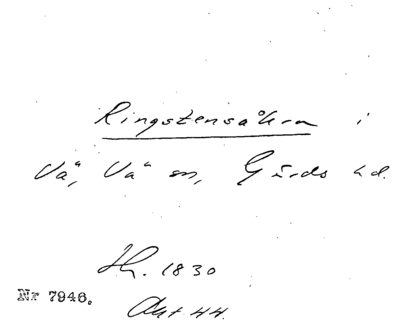 Ringstensåkra i
Vä, Vä sn, Gärds hd.
Th. 1830
Nr 7946.
Akt 44.